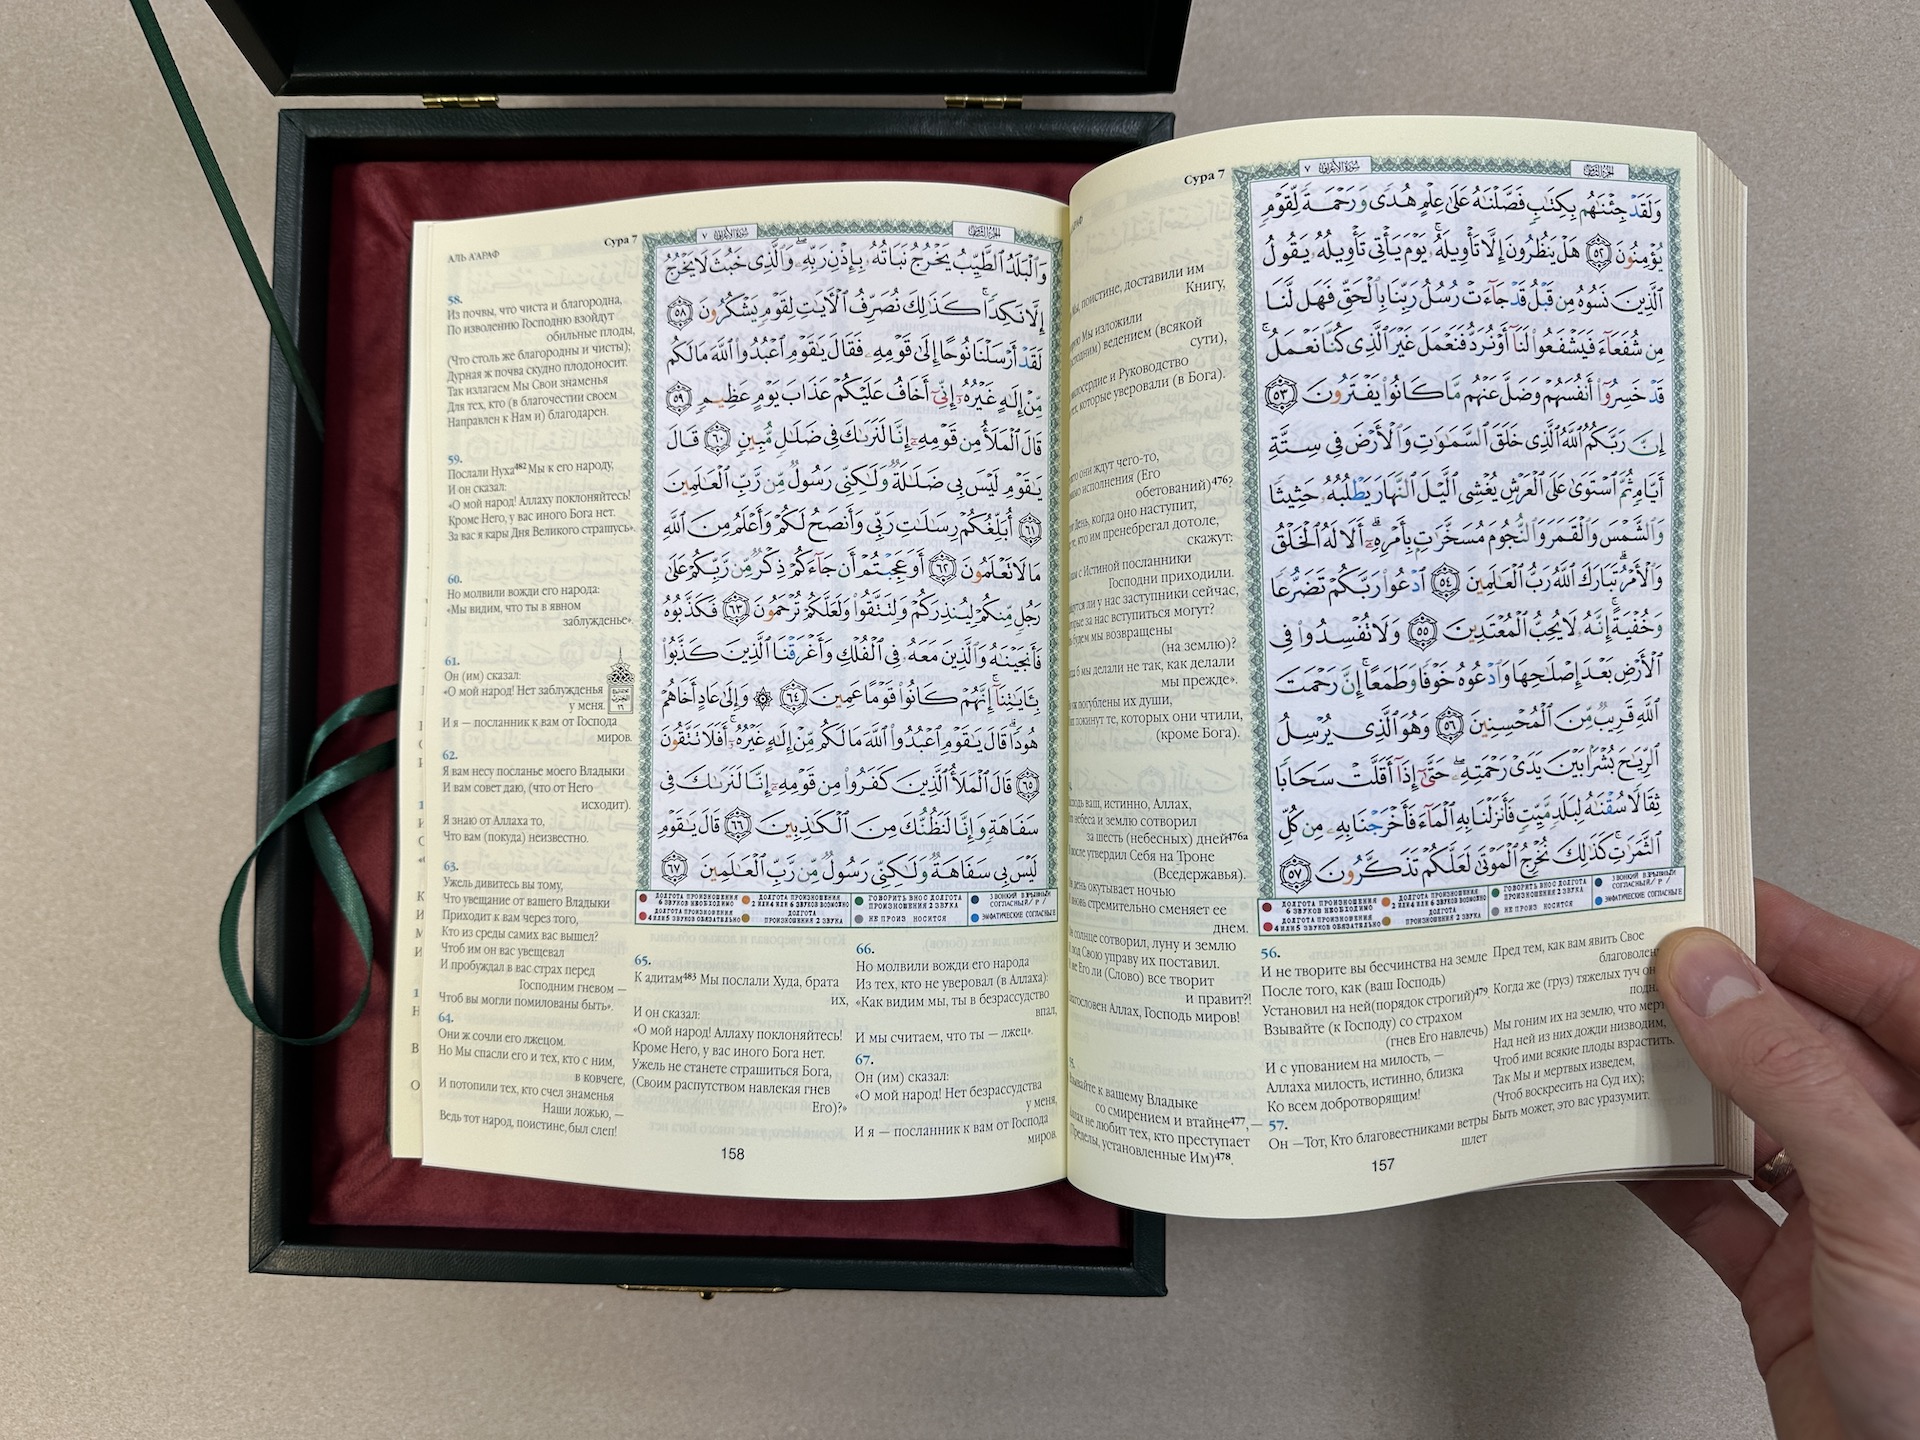 Сура 7
٧ سُورَةُ الأَعْرَافِ
الجُزْءُ الثَّامِنُ
وَلَقَدْ جِئْنَٰهُم بِكِتَٰبٍ فَصَّلْنَٰهُ عَلَىٰ عِلْمٍ هُدًى وَرَحْمَةً لِّقَوْمٍ
يُؤْمِنُونَ ٥٢ هَلْ يَنظُرُونَ إِلَّا تَأْوِيلَهُۥ ۚ يَوْمَ يَأْتِى تَأْوِيلُهُۥ يَقُولُ
ٱلَّذِينَ نَسُوهُ مِن قَبْلُ قَدْ جَآءَتْ رُسُلُ رَبِّنَا بِٱلْحَقِّ فَهَل لَّنَا
مِن شُفَعَآءَ فَيَشْفَعُوا۟ لَنَآ أَوْ نُرَدُّ فَنَعْمَلَ غَيْرَ ٱلَّذِى كُنَّا نَعْمَلُ ۚ
قَدْ خَسِرُوٓا۟ أَنفُسَهُمْ وَضَلَّ عَنْهُم مَّا كَانُوا۟ يَفْتَرُونَ ٥٣
إِنَّ رَبَّكُمُ ٱللَّهُ ٱلَّذِى خَلَقَ ٱلسَّمَٰوَٰتِ وَٱلْأَرْضَ فِى سِتَّةِ
أَيَّامٍ ثُمَّ ٱسْتَوَىٰ عَلَى ٱلْعَرْشِ يُغْشِى ٱلَّيْلَ ٱلنَّهَارَ يَطْلُبُهُۥ حَثِيثًا
وَٱلشَّمْسَ وَٱلْقَمَرَ وَٱلنُّجُومَ مُسَخَّرَٰتٍۭ بِأَمْرِهِۦٓ ۗ أَلَا لَهُ ٱلْخَلْقُ
وَٱلْأَمْرُ ۗ تَبَارَكَ ٱللَّهُ رَبُّ ٱلْعَٰلَمِينَ ٥٤ ٱدْعُوا۟ رَبَّكُمْ تَضَرُّعًا
وَخُفْيَةً ۚ إِنَّهُۥ لَا يُحِبُّ ٱلْمُعْتَدِينَ ٥٥ وَلَا تُفْسِدُوا۟ فِى
ٱلْأَرْضِ بَعْدَ إِصْلَٰحِهَا وَٱدْعُوهُ خَوْفًا وَطَمَعًا ۚ إِنَّ رَحْمَتَ
ٱللَّهِ قَرِيبٌ مِّنَ ٱلْمُحْسِنِينَ ٥٦ وَهُوَ ٱلَّذِى يُرْسِلُ
ٱلرِّيَٰحَ بُشْرًۢا بَيْنَ يَدَىْ رَحْمَتِهِۦ ۖ حَتَّىٰٓ إِذَآ أَقَلَّتْ سَحَابًا
ثِقَالًا سُقْنَٰهُ لِبَلَدٍ مَّيِّتٍ فَأَنزَلْنَا بِهِ ٱلْمَآءَ فَأَخْرَجْنَا بِهِۦ مِن كُلِّ
ٱلثَّمَرَٰتِ ۚ كَذَٰلِكَ نُخْرِجُ ٱلْمَوْتَىٰ لَعَلَّكُمْ تَذَكَّرُونَ ٥٧
ДОЛГОТА ПРОИЗНОШЕНИЯ
6 ЗВУКОВ НЕОБХОДИМО
ДОЛГОТА ПРОИЗНОШЕНИЯ
4 ИЛИ 5 ЗВУКОВ ОБЯЗАТЕЛЬНО
ДОЛГОТА ПРОИЗНОШЕНИЯ
2 ИЛИ 4 ИЛИ 6 ЗВУКОВ ВОЗМОЖНО
ДОЛГОТА
ПРОИЗНОШЕНИЯ 2 ЗВУКА
ГОВОРИТЬ В НОС ДОЛГОТА
ПРОИЗНОШЕНИЯ 2 ЗВУКА
НЕ ПРОИЗ НОСИТСЯ
ЗВОНКИЙ ВЗРЫВНЫЙ
СОГЛАСНЫЙ / Р /
ЭМФАТИЧЕСКИЕ СОГЛАСНЫЕ
Мы, поистине, доставили им
Книгу,
Мы изложили
ведением (всякой
сути),
и Руководство
которые уверовали (в Бога).
они ждут чего-то,
исполнения (Его
обетований)476?
День, когда оно наступит,
кто им пренебрегал дотоле,
скажут:
с Истиной посланники
Господни приходили.
ли у нас заступники сейчас,
за нас вступиться могут?
будем мы возвращены
(на землю)?
б мы делали не так, как делали
мы прежде».
погублены их души,
покинут те, которых они чтили,
(кроме Бога).
ваш, истинно, Аллах,
небеса и землю сотворил
за шесть (небесных) дней476a
после утвердил Себя на Троне
(Вседержавья).
день окутывает ночью
стремительно сменяет ее
днем.
солнце сотворил, луну и землю
под Свою управу их поставил.
не Его ли (Слово) все творит
и правит?!
Аллах, Господь миров!
к вашему Владыке
со смирением и втайне477,—
не любит тех, кто преступает
Пределы, установленные Им)478.
56.
И не творите вы бесчинства на земле
После того, как (ваш Господь)
Установил на ней(порядок строгий)479.
Взывайте (к Господу) со страхом
(гнев Его навлечь)
И с упованием на милость, —
Аллаха милость, истинно, близка
Ко всем добротворящим!
57.
Он —Тот, Кто благовестниками ветры
шлет
Пред тем, как вам явить Свое
Когда же (груз) тяжелых туч
Мы гоним их на землю, что
Над ней из них дожди низводим,
Чтоб ими всякие плоды взрастить.
Так Мы и мертвых изведем,
(Чтоб воскресить на Суд их);
Быть может, это вас уразумит.
157
АЛЬ А'АРАФ
Сура 7
٧ سُورَةُ الأَعْرَافِ
الجُزْءُ الثَّامِنُ
وَٱلْبَلَدُ ٱلطَّيِّبُ يَخْرُجُ نَبَاتُهُۥ بِإِذْنِ رَبِّهِۦ ۖ وَٱلَّذِى خَبُثَ لَا يَخْرُجُ
إِلَّا نَكِدًا ۚ كَذَٰلِكَ نُصَرِّفُ ٱلْءَايَٰتِ لِقَوْمٍ يَشْكُرُونَ ٥٨
لَقَدْ أَرْسَلْنَا نُوحًا إِلَىٰ قَوْمِهِۦ فَقَالَ يَٰقَوْمِ ٱعْبُدُوا۟ ٱللَّهَ مَا لَكُم
مِّنْ إِلَٰهٍ غَيْرُهُۥٓ إِنِّىٓ أَخَافُ عَلَيْكُمْ عَذَابَ يَوْمٍ عَظِيمٍ ٥٩
قَالَ ٱلْمَلَأُ مِن قَوْمِهِۦٓ إِنَّا لَنَرَىٰكَ فِى ضَلَٰلٍ مُّبِينٍ ٦٠ قَالَ
يَٰقَوْمِ لَيْسَ بِى ضَلَٰلَةٌ وَلَٰكِنِّى رَسُولٌ مِّن رَّبِّ ٱلْعَٰلَمِينَ
٦١ أُبَلِّغُكُمْ رِسَٰلَٰتِ رَبِّى وَأَنصَحُ لَكُمْ وَأَعْلَمُ مِنَ ٱللَّهِ
مَا لَا تَعْلَمُونَ ٦٢ أَوَعَجِبْتُمْ أَن جَآءَكُمْ ذِكْرٌ مِّن رَّبِّكُمْ عَلَىٰ
رَجُلٍ مِّنكُمْ لِيُنذِرَكُمْ وَلِتَتَّقُوا۟ وَلَعَلَّكُمْ تُرْحَمُونَ ٦٣ فَكَذَّبُوهُ
فَأَنجَيْنَٰهُ وَٱلَّذِينَ مَعَهُۥ فِى ٱلْفُلْكِ وَأَغْرَقْنَا ٱلَّذِينَ كَذَّبُوا۟
بِـَٔايَٰتِنَآ ۚ إِنَّهُمْ كَانُوا۟ قَوْمًا عَمِينَ ٦٤ ۞ وَإِلَىٰ عَادٍ أَخَاهُمْ
هُودًا ۗ قَالَ يَٰقَوْمِ ٱعْبُدُوا۟ ٱللَّهَ مَا لَكُم مِّنْ إِلَٰهٍ غَيْرُهُۥٓ ۚ أَفَلَا تَتَّقُونَ
٦٥ قَالَ ٱلْمَلَأُ ٱلَّذِينَ كَفَرُوا۟ مِن قَوْمِهِۦٓ إِنَّا لَنَرَىٰكَ فِى
سَفَاهَةٍ وَإِنَّا لَنَظُنُّكَ مِنَ ٱلْكَٰذِبِينَ ٦٦ قَالَ يَٰقَوْمِ
لَيْسَ بِى سَفَاهَةٌ وَلَٰكِنِّى رَسُولٌ مِّن رَّبِّ ٱلْعَٰلَمِينَ ٦٧
ДОЛГОТА ПРОИЗНОШЕНИЯ
6 ЗВУКОВ НЕОБХОДИМО
ДОЛГОТА ПРОИЗНОШЕНИЯ
4 ИЛИ 5 ЗВУКОВ ОБЯЗАТЕЛЬНО
ДОЛГОТА ПРОИЗНОШЕНИЯ
2 ИЛИ 4 ИЛИ 6 ЗВУКОВ ВОЗМОЖНО
ДОЛГОТА
ПРОИЗНОШЕНИЯ 2 ЗВУКА
ГОВОРИТЬ В НОС ДОЛГОТА
ПРОИЗНОШЕНИЯ 2 ЗВУКА
НЕ ПРОИЗ НОСИТСЯ
ЗВОНКИЙ ВЗРЫВНЫЙ
СОГЛАСНЫЙ / Р /
ЭМФАТИЧЕСКИЕ СОГЛАСНЫЕ
58.
Из почвы, что чиста и благородна,
По изволению Господню взойдут
обильные плоды,
(Что столь же благородны и чисты);
Дурная ж почва скудно плодоносит.
Так излагаем Мы Свои знаменья
Для тех, кто (в благочестии своем
Направлен к Нам и) благодарен.
59.
Послали Нуха482 Мы к его народу,
И он сказал:
«О мой народ! Аллаху поклоняйтесь!
Кроме Него, у вас иного Бога нет.
За вас я кары Дня Великого страшусь».
60.
Но молвили вожди его народа:
«Мы видим, что ты в явном
заблужденье».
61.
Он (им) сказал:
«О мой народ! Нет заблужденья
у меня.
И я — посланник к вам от Господа
миров.
62.
Я вам несу посланье моего Владыки
И вам совет даю, (что от Него
исходит).
Я знаю от Аллаха то,
Что вам (покуда) неизвестно.
63.
Ужель дивитесь вы тому,
Что увещание от вашего Владыки
Приходит к вам через того,
Кто из среды самих вас вышел?
Чтоб им он вас увещевал
И пробуждал в вас страх перед
Господним гневом —
Чтоб вы могли помилованы быть».
64.
Они ж сочли его лжецом.
Но Мы спасли его и тех, кто с ним,
в ковчеге,
И потопили тех, кто счел знаменья
Наши ложью, —
Ведь тот народ, поистине, был слеп!
65.
К адитам483 Мы послали Худа, брата
их,
И он сказал:
«О мой народ! Аллаху поклоняйтесь!
Кроме Него, у вас иного Бога нет.
Ужель не станете страшиться Бога,
(Своим распутством навлекая гнев
Его)?»
66.
Но молвили вожди его народа
Из тех, кто не уверовал (в Аллаха):
«Как видим мы, ты в безрассудство
впал,
И мы считаем, что ты — лжец».
67.
Он (им) сказал:
«О мой народ! Нет безрассудства
у меня,
И я — посланник к вам от Господа
миров.
158